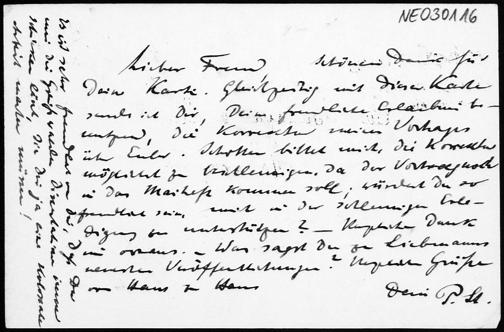 NE030116
Lieber Freund, Schönen Dank für
Deine Karte. Gleichzeitig mit dieser Karte
sende ich Dir, Deine freundliche Erlaubnis be-
nutzend, die Korrectur meines Vortrages
über Euler. Schotten bittet mich, die Korrectur
möglichst zu beschleunigen, da der Vortrag noch
in das Maiheft kommen soll; würdest Du so
freundlich sein, mich in der schleunigen Erle-
digung zu unterstützen? – Herzlichen Dank
im voraus. – Was sagst Du zu Liebmanns
neuesten Veröffentlichungen? Herzliche Grüße
von Haus zu Haus
Dein P. St.
Es ist sehr freundlich von Dir, daß Du
mir die
schicken willst, die Dir ja eine kolossale
Arbeit machen müssen!